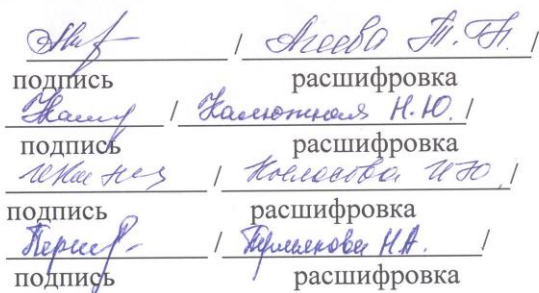 / Агеева Т.П. /
подпись расшифровка
/ Калюжная Н.Ю. /
подпись расшифровка
/ Колосова И.Ю. /
подпись расшифровка
/ Пермякова Н.А. /
подпись расшифровка